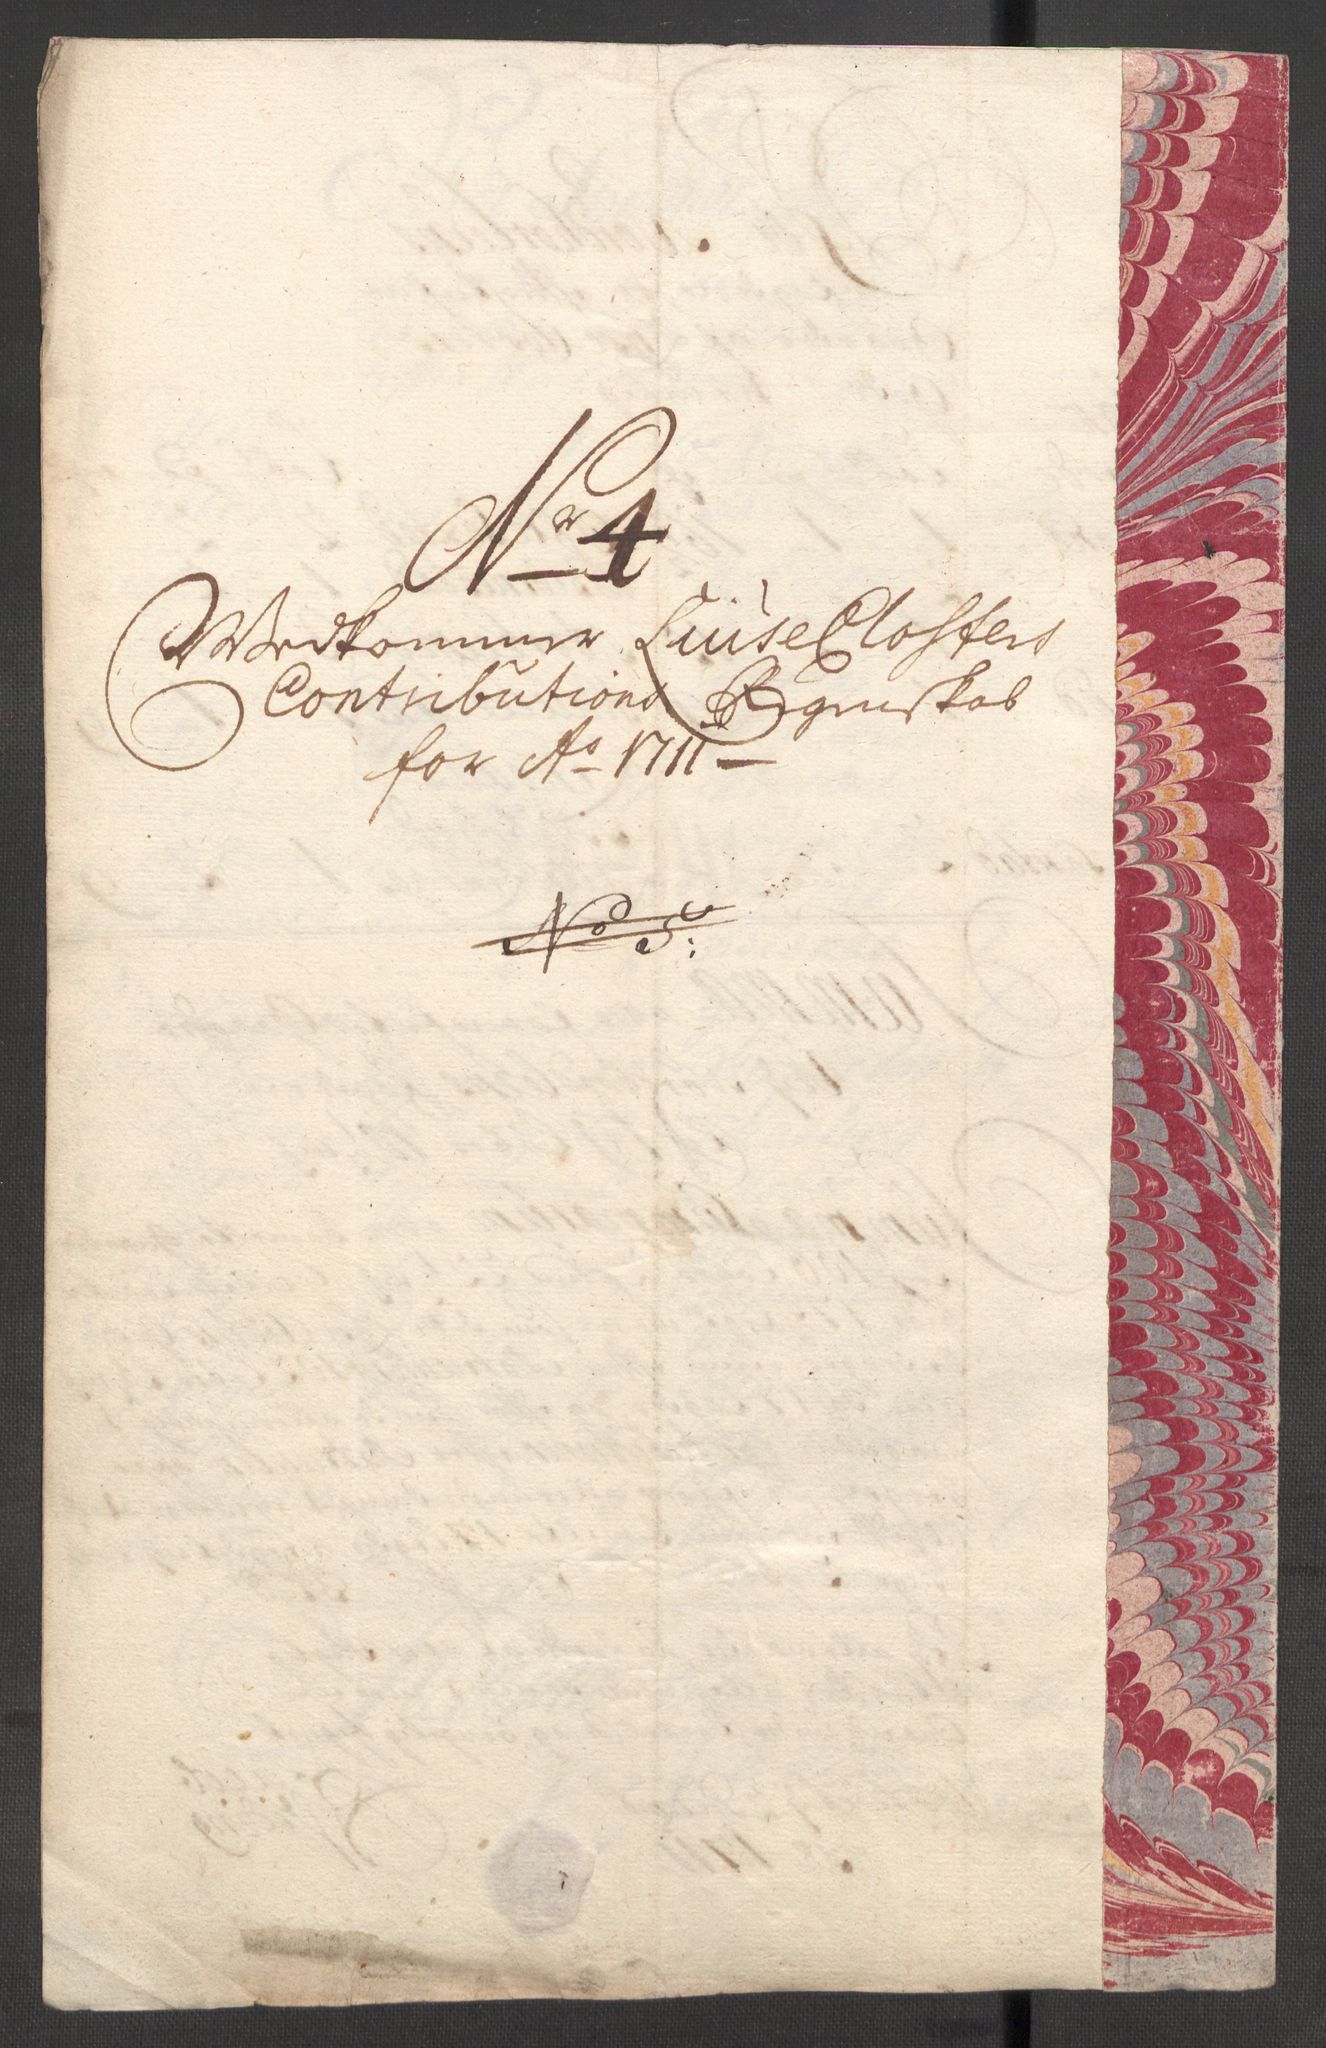 Nr 4
Wedkommer Liüse Closters
Contributions Regenskab
for Ao 1711
No 5: